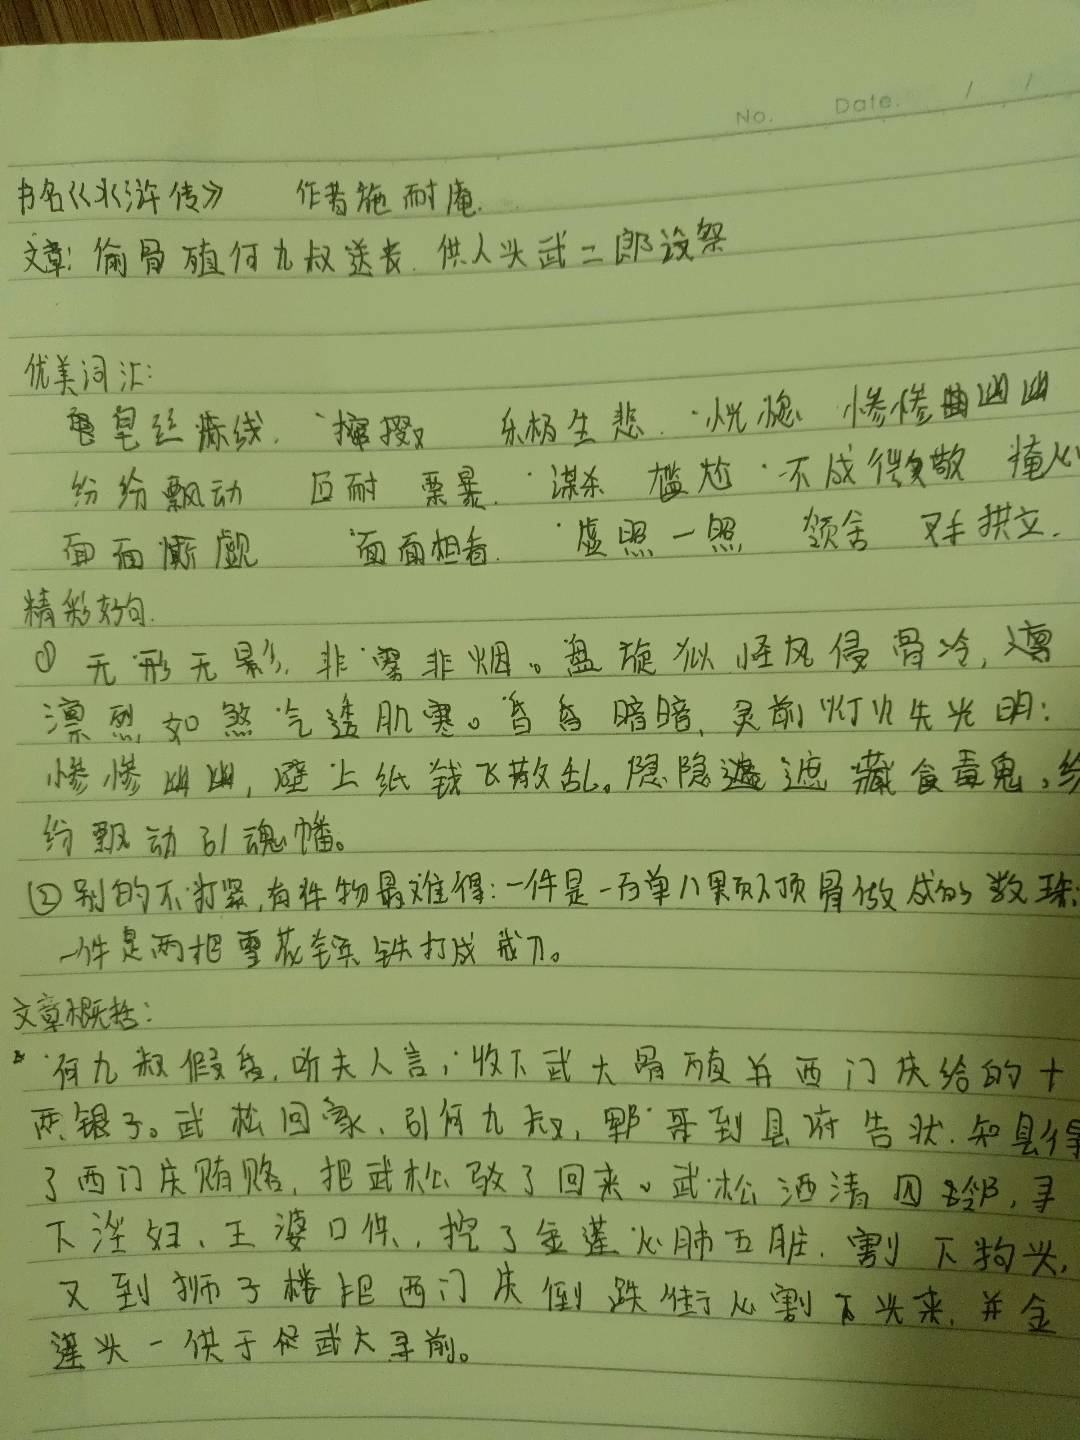 No. Date. / /
书名《水浒传》 作者施耐庵.
文章: 偷骨殖何九叔送丧. 供人头武二郎设祭
优美词汇:
皂丝麻线. 撺掇 乐极生悲. 恍惚 惨惨幽幽
纷纷飘动 叵耐 栗暴. 谋杀 尴尬 不成微敬 掩心
面面厮觑 面面相看. 虚照一照 领舍 叉手拱立.
精彩好句.
① 无形无影, 非雾非烟。盘旋似怪风侵骨冷, 凛
凛烈如煞气透肌寒。昏昏暗暗, 灵前灯火失光明:
惨惨幽幽, 壁上纸钱飞散乱。隐隐遮遮藏食毒鬼, 纷
纷飘动引魂幡。
② 别的不打紧, 有件物最难得: 一件是一百单八颗顶骨做成的数珠;
一件是两把雪花镔铁打成戒刀。
文章概括:
何九叔假昏, 听夫人言, 收下武大骨殖并西门庆给的十
两银子。武松回家, 引何九叔, 郓哥到县府告状. 知县得
了西门庆贿赂, 把武松驳了回来。武松洒请四邻, 寻
下淫妇、王婆口供, 挖了金莲心肺五脏. 割下狗头,
又到狮子楼把西门庆倒跌街心割下头来, 并金
莲头一供于武大灵前。